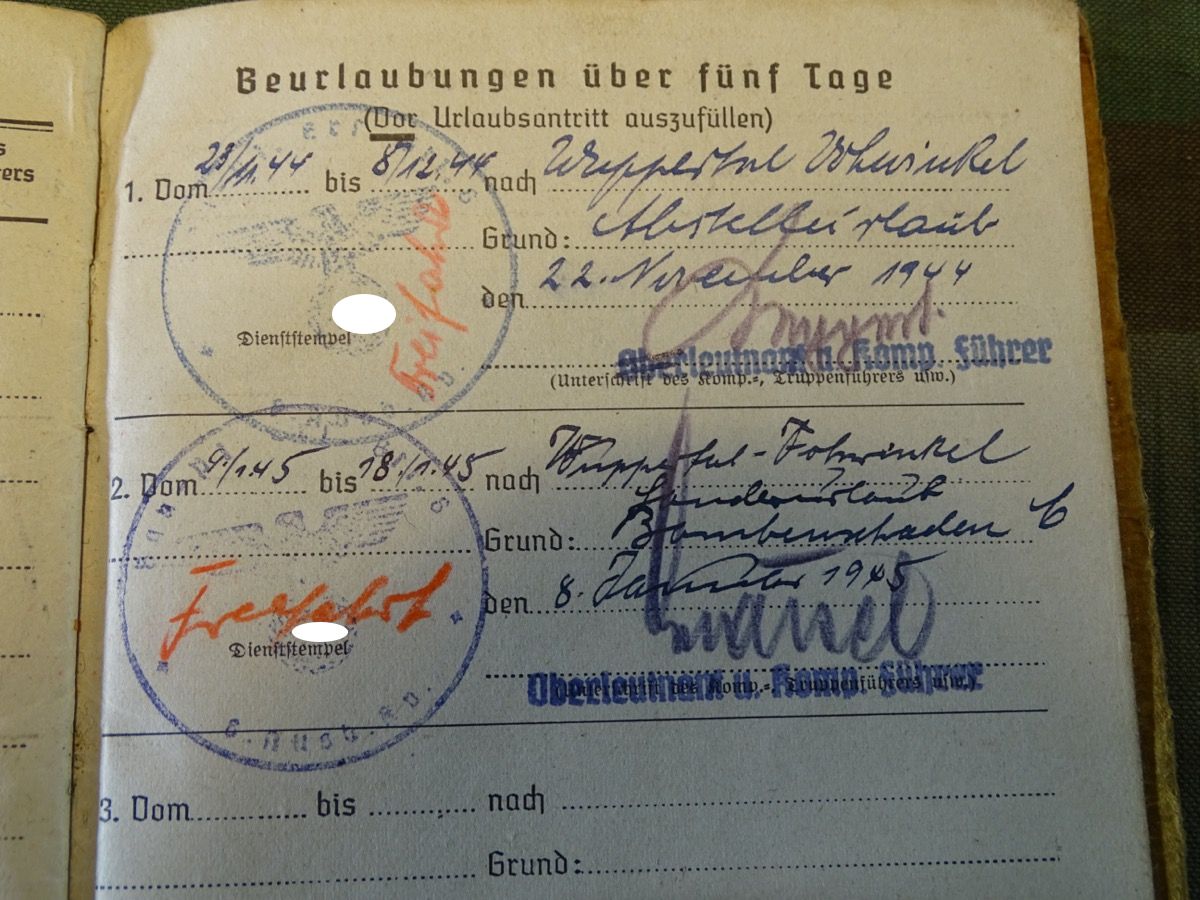 Beurlaubungen über fünf Tage
(Vor Urlaubsantritt auszufüllen)
1. Vom 23/11.44 bis 8/12.44 nach Wuppertal Vohwinkel
Grund: Abstellurlaub
den 22. November 1944
Freifahrt
Dienststempel
Oberleutnant u. Komp. Führer
(Unterschrift des Komp.-, Truppenführers usw.)
2. Vom 9/1.45 bis 18/1.45 nach Wuppertal-Vohwinkel
Sonderurlaub
Grund: Bombenschaden
den 8. Januar 1945
Freifahrt
Dienststempel
Oberleutnant u. Komp. Führer
(Unterschrift des Komp.-, Truppenführers usw.)
3. Vom bis nach
Grund: